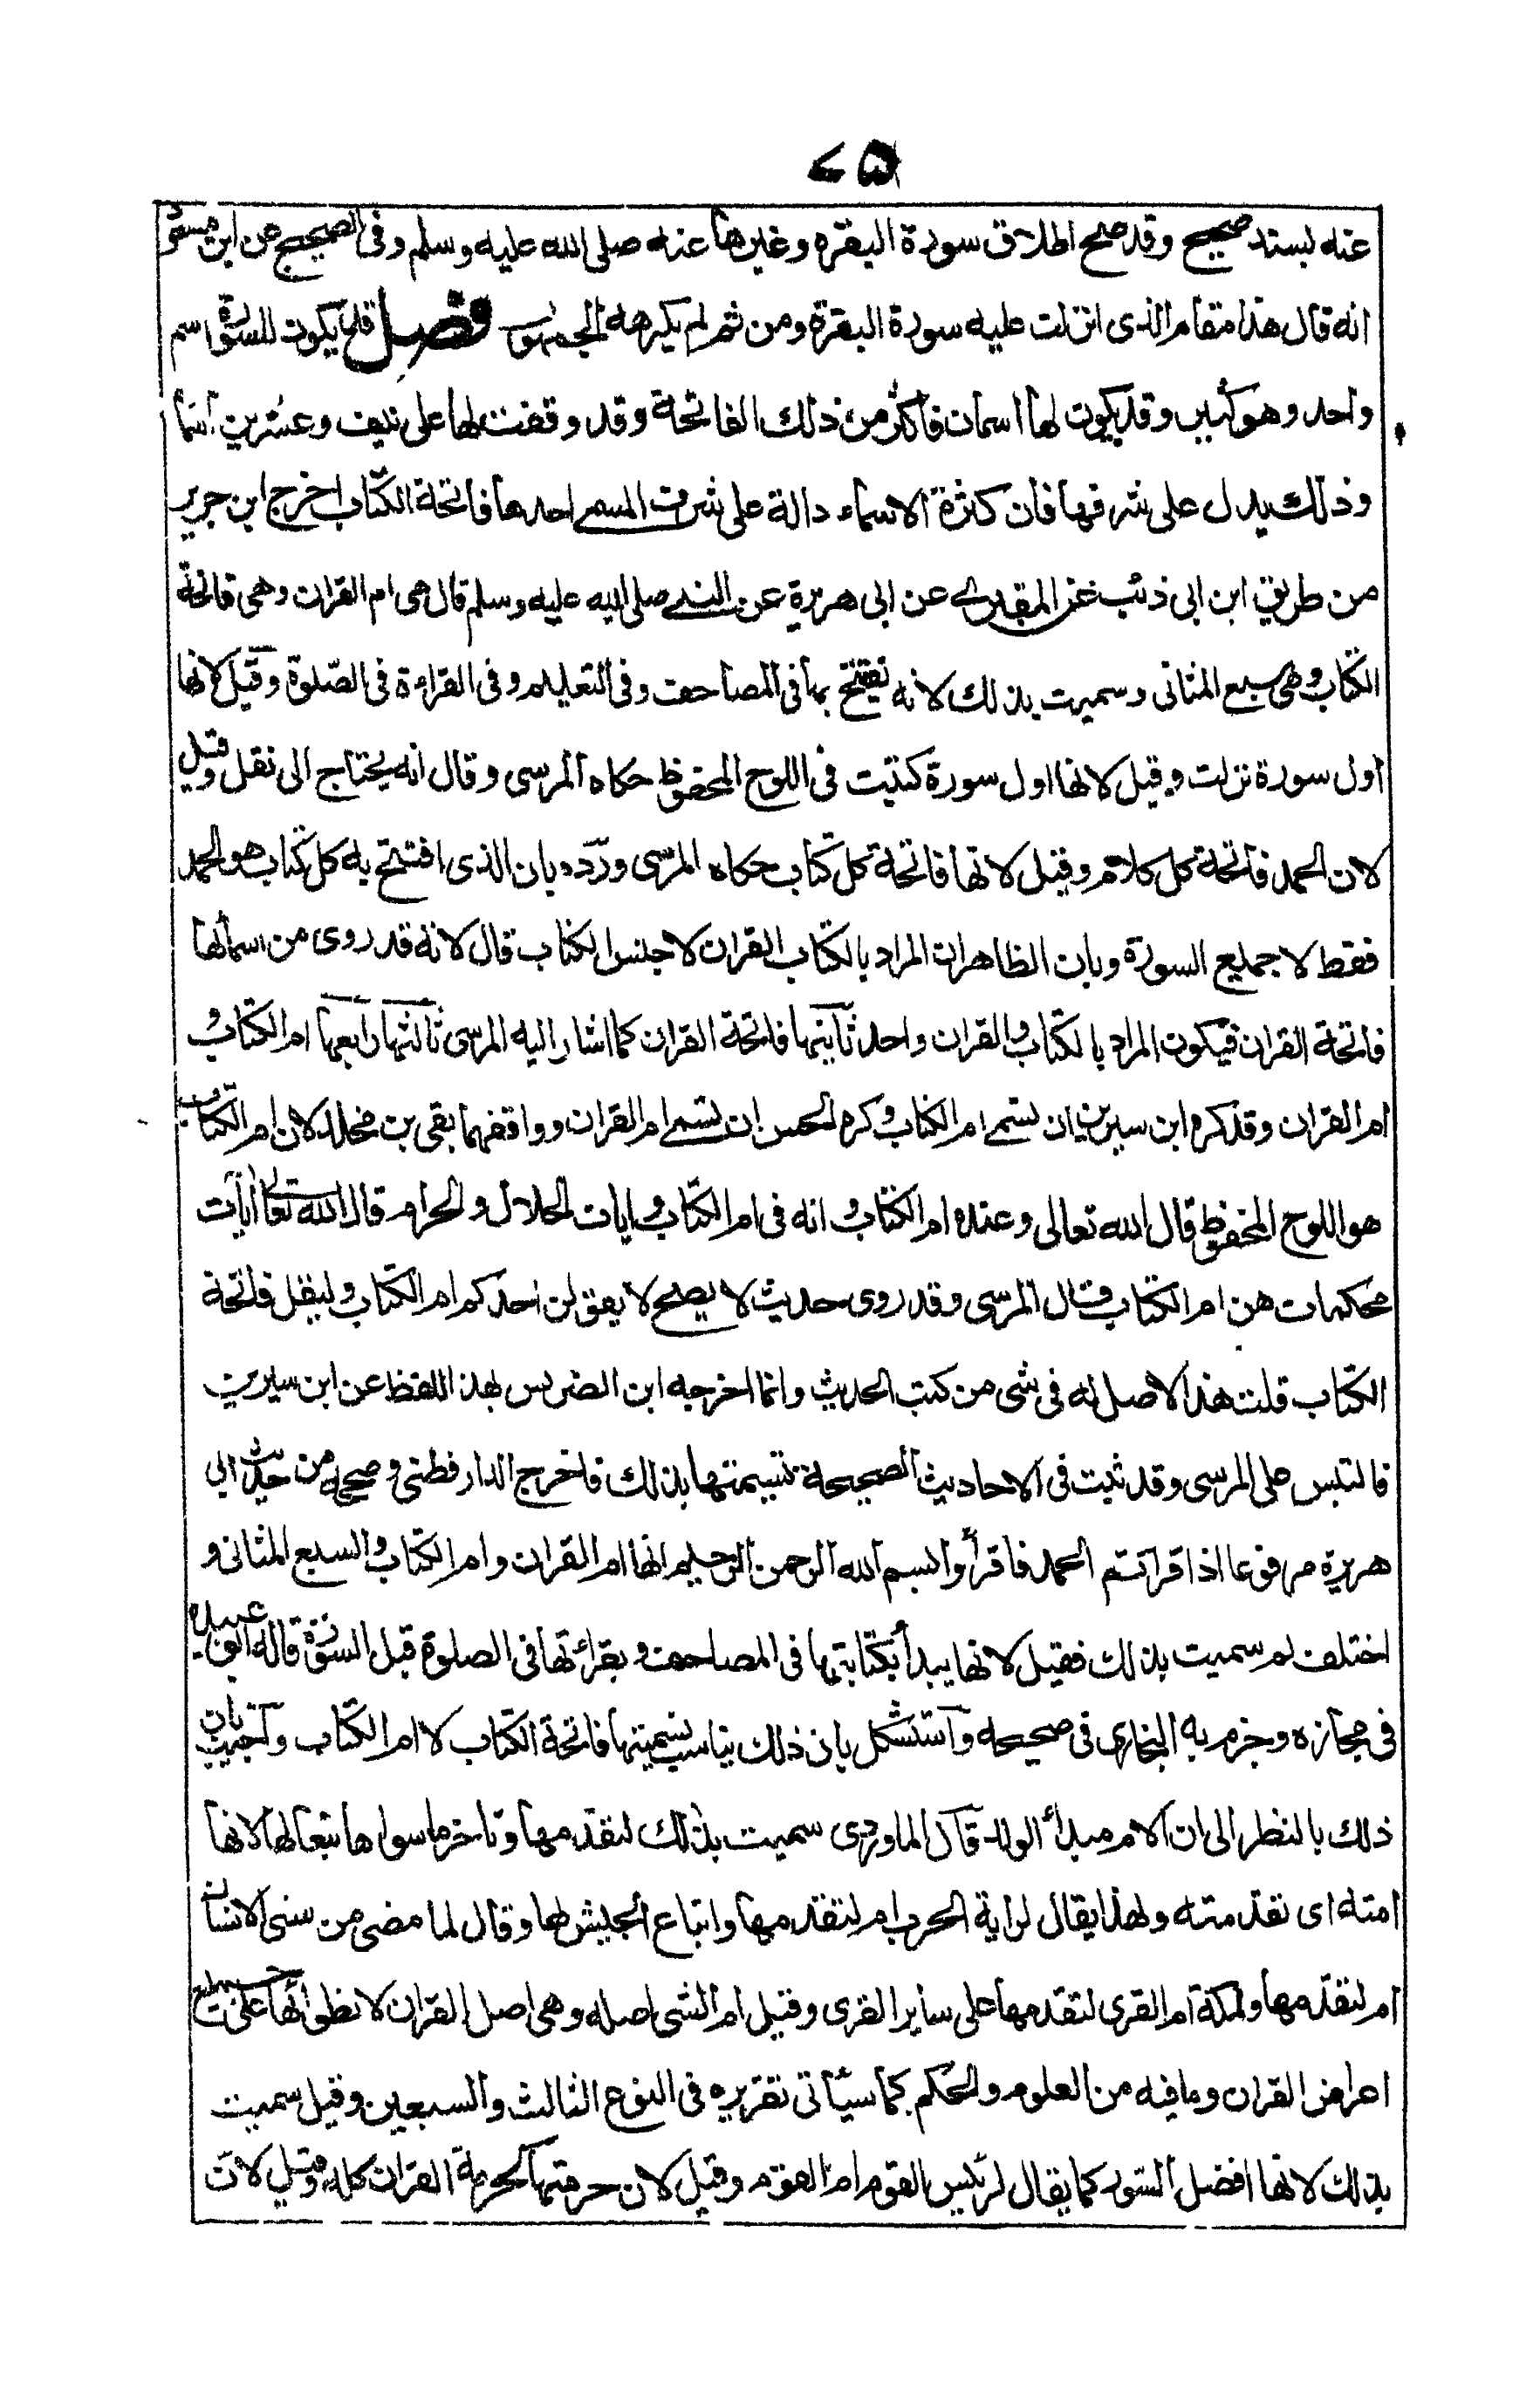 ٧٥
عنه بسند صحيح وقد صح اطلاق سورة البقره وغيرها عنه صلى الله عليه وسلم وفى الصحيح عن ابن مسعود
انه قال هذا مقام الذى انزلت عليه سورة البقرة ومن ثم لم يكرهه الجمهور فصل قد يكون للسورة اسم
واحد وهو كثير وقد يكون لها اسمان فأكثر من ذلك الفاتحة وقد وقفت لها على نيف وعشرين اسما
وذلك يدل على شرفها فان كثرة الاسماء دالة على شرف المسمى احدها فاتحة الكتاب اخرج ابن جرير
من طريق ابن ابى ذئب عن المقبرى عن ابى هريرة عن النبى صلى الله عليه وسلم قال هى ام القران وهى فاتحة
الكتاب وهى سبع المثانى وسميت بذلك لانه يفتتح بها فى المصاحف وفى التعليم وفى القراءة فى الصلوة وقيل لانها
اول سورة نزلت وقيل لانها اول سورة كتبت فى اللوح المحفوظ حكاه المرسى وقال انه يحتاج الى نقل وقيل
لان الحمد فاتحة كل كلام وقيل لانها فاتحة كل كتاب حكاه المرسى وردّه بان الذى افتتح به كل كتاب هو الحمد
فقط لا جميع السورة وبان الظاهر ان المراد بالكتاب القران لا جنس الكتاب قال لانه قد روى من اسمائها
فاتحة القران فيكون المراد بالكتاب والقران واحد ثانيها فاتحة القران كما اشار اليه المرسى ثالثها رابعها ام الكتاب و
ام القران وقد كره ابن سيرين ان تسمى ام الكتاب وكره الحسن ان تسمى ام القران ووافقهما بقى بن مخلد لان ام الكتاب
هو اللوح المحفوظ قال الله تعالى وعنده ام الكتاب و انه فى ام الكتاب و ايات الحلال والحرام قال الله تعالى آيات
محكمات هن ام الكتاب قال المرسى وقد روى حديث لا يصح لا يقولن احدكم ام الكتاب وليقل فاتحة
الكتاب قلت هذا لا اصل له فى شى من كتب الحديث وانما اخرجه ابن الضريس بهذا اللفظ عن ابن سيرين
فالتبس على المرسى وقد ثبت فى الاحاديث الصحيحة تسيمتها بذلك فاخرج الدارقطنى وصححه من حديث ابى
هريرة مرفوعا اذا قراتم الحمد فاقرأوا بسم الله الرحمن الرحيم انها ام القران وام الكتاب والسبع المثانى و
اختلف لم سميت بذلك فقيل لانها يبدأ بكتابتها فى المصاحف و بقرائتها فى الصلوة قبل السورة قاله ابو عبيدة
فى مجازه وجزم به البخارى فى صحيحه وآستشكل بان ذلك يناسب تسميتها فاتحة الكتاب لا ام الكتاب وآجيب بان
ذلك بالنظر الى ان الام مبدأ الولد قال الماوردى سميت بذلك لتقدمها وتاخر ما سواها تبعا لها لانها
امته اى تقدمته ولهذا يقال لراية الحرب ام لتقدمها واتباع الجيش لها وقال لما مضى من سنى الانسان
ام لتقدّمها ولمكة ام القرى لتقدمها على ساير القرى وقيل ام الشى اصله وهى اصل القران لانطوائها على جميع
اعراض القران وما فيه من العلوم والحكم كما سيأتى تقريره فى النوع الثالث والسبعين وقيل سميت
بذلك لانها افضل السور كما يقال لرئيس القوم ام القوم وقيل لان حرمتها كحرمة القران كله وقيل لان